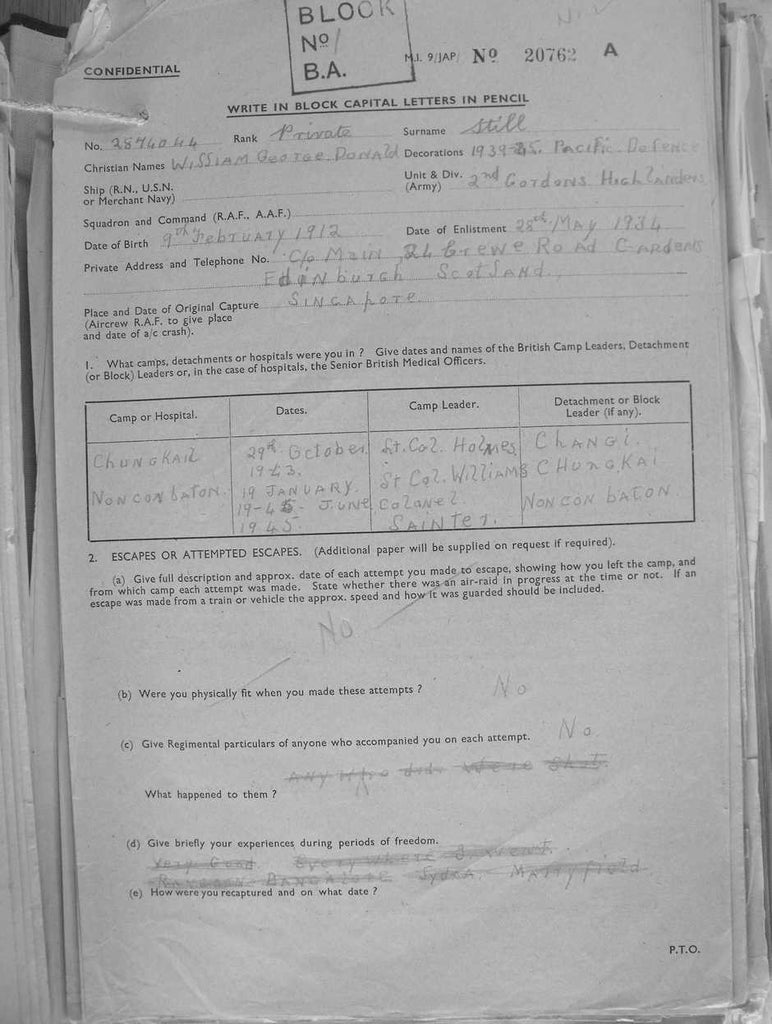 BLOCK
Nº 1
B.A.
CONFIDENTIAL
M.I. 9/JAP/ Nº 20762 A
WRITE IN BLOCK CAPITAL LETTERS IN PENCIL
No. 2874044 Rank Private Surname Still
Christian Names WILLIAM GEORGE DONALD Decorations 1939-45. PACIFIC. DEFENCE
Ship (R.N., U.S.N. or Merchant Navy)
Unit & Div. (Army) 2nd GORDONS HIGHLANDERS
Squadron and Command (R.A.F., A.A.F.)
Date of Birth 9th FEBRUARY 1912 Date of Enlistment 28th MAY 1934
Private Address and Telephone No. C/o MAIN, 24 Crewe ROAD GARDENS
EDINBURGH SCOTLAND.
Place and Date of Original Capture SINGAPORE
(Aircrew R.A.F. to give place
and date of a/c crash).
1. What camps, detachments or hospitals were you in ? Give dates and names of the British Camp Leaders, Detachment
(or Block) Leaders or, in the case of hospitals, the Senior British Medical Officers.
Camp or Hospital. Dates. Camp Leader. Detachment or Block Leader (if any).
CHUNGKAIL 29th October 1943. Lt. Col. Holmes CHANGI.
NONCONBATON. 19 JANUARY. St Col. WILLIAMS CHUNGKAI
19-45- JUNE Colonel NONCONBATON
1945. SAINTER.
2. ESCAPES OR ATTEMPTED ESCAPES. (Additional paper will be supplied on request if required).
(a) Give full description and approx. date of each attempt you made to escape, showing how you left the camp, and
from which camp each attempt was made. State whether there was an air-raid in progress at the time or not. If an
escape was made from a train or vehicle the approx. speed and how it was guarded should be included.
NO
(b) Were you physically fit when you made these attempts ? No
(c) Give Regimental particulars of anyone who accompanied you on each attempt. No.
ANY Who did. Were Shot.
What happened to them ?
(d) Give briefly your experiences during periods of freedom.
Very Good Everywhere I went.
RANGOON BANGALORE Mattyfield
(e) How were you recaptured and on what date ?
P.T.O.